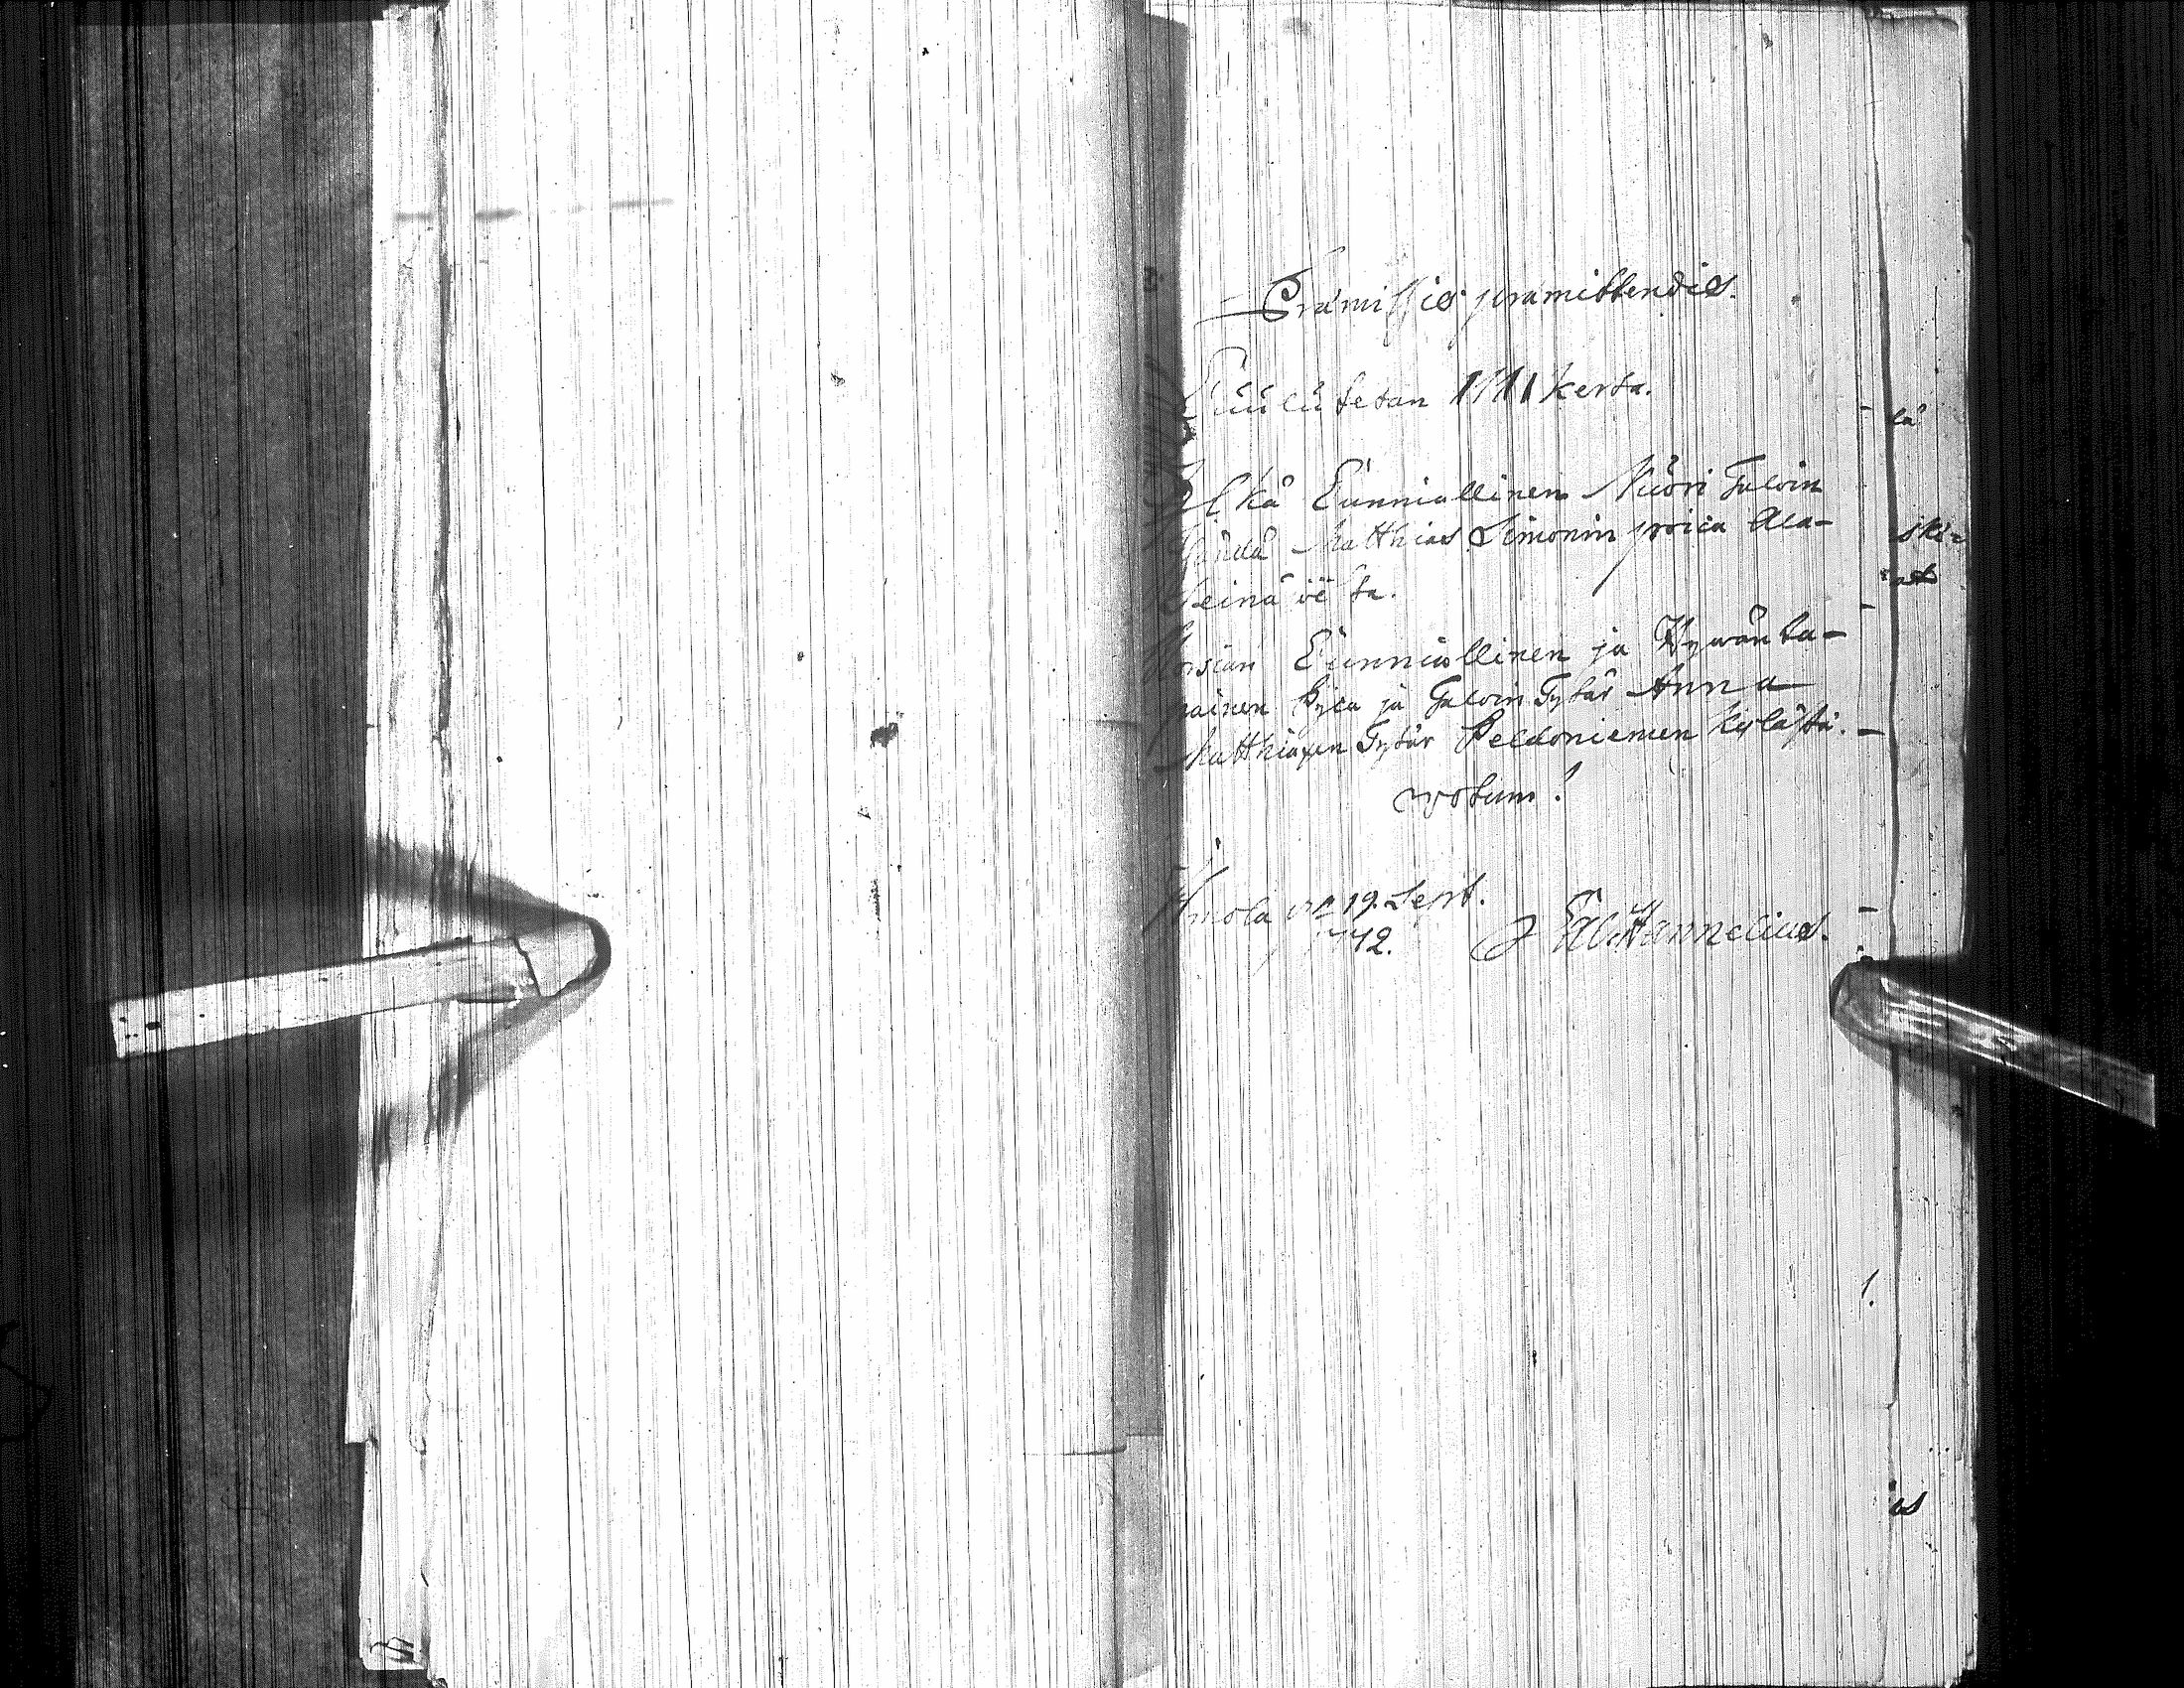 Præmissis præmittendis.
Cuulutetan 111 kerta.
Cunniallinen Nuori Taloin
Matthias Simonin poica Ala-
Seinäioe ta.
Morsian Cunniallinen ja Hywänta-
painen Pyca ja Taloin Tytär Anna
Matthiaxen Tytär Peldoniemen kylästä.
votum!
Ilmola 19. Sept.
1742.
Hannelius.